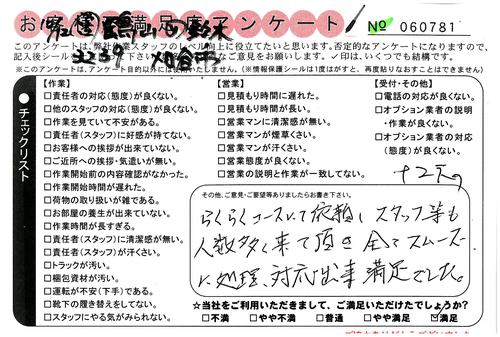 お客様満足度アンケート
No 060781
このアンケートは、弊社作業スタッフのレベル向上に役立てたいと思います。否定的なアンケートになりますので、
ご意見をお願いします。✓印は、いくつでも結構です。
※このアンケートは、アンケート目的以外には使用いたしません。(※情報保護シールは1度はがすと、再度貼りなおすことができません)
チェックリスト
【作業】
□責任者の対応(態度)が良くない。
□他のスタッフの対応(態度)が良くない。
□作業を見ていて不安がある。
□責任者(スタッフ)に好感が持てない。
□お客様への挨拶が出来ていない。
□ご近所への挨拶・気遣いが無い。
□作業開始前の内容確認がなかった。
□作業開始時間が遅れた。
□荷物の取り扱いが雑である。
□お部屋の養生が出来ていない。
□作業時間が長すぎる。
□責任者(スタッフ)に清潔感が無い。
□責任者(スタッフ)が汗くさい。
□トラックが汚い。
□梱包資材が汚い。
□運転が不安(下手)である。
□靴下の履き替えをしてない。
□スタッフにやる気がみられない。
【営業】
□見積もり時間に遅れた。
□見積もり時間が長い。
□営業マンに清潔感が無い。
□営業マンが煙草くさい。
□営業マンが汗くさい。
□営業態度が良くない。
□営業の説明と作業が一致してない。
【受付・その他】
□電話の対応が良くない。
□オプション業者の説明
・作業が良くない。
□オプション業者の対応
(態度)が良くない。
その他、ご意見・ご要望等ありましたらお書き下さい。
らくらくコースにて依頼し スタッフ等も
人数多く来て頂き 全てスムーズ
に処理、対応出来 満足でした。
☆当社をご利用いただきまして、ご満足いただけたでしょうか?
□不満 □やや不満 □普通 □やや満足 ☑満足